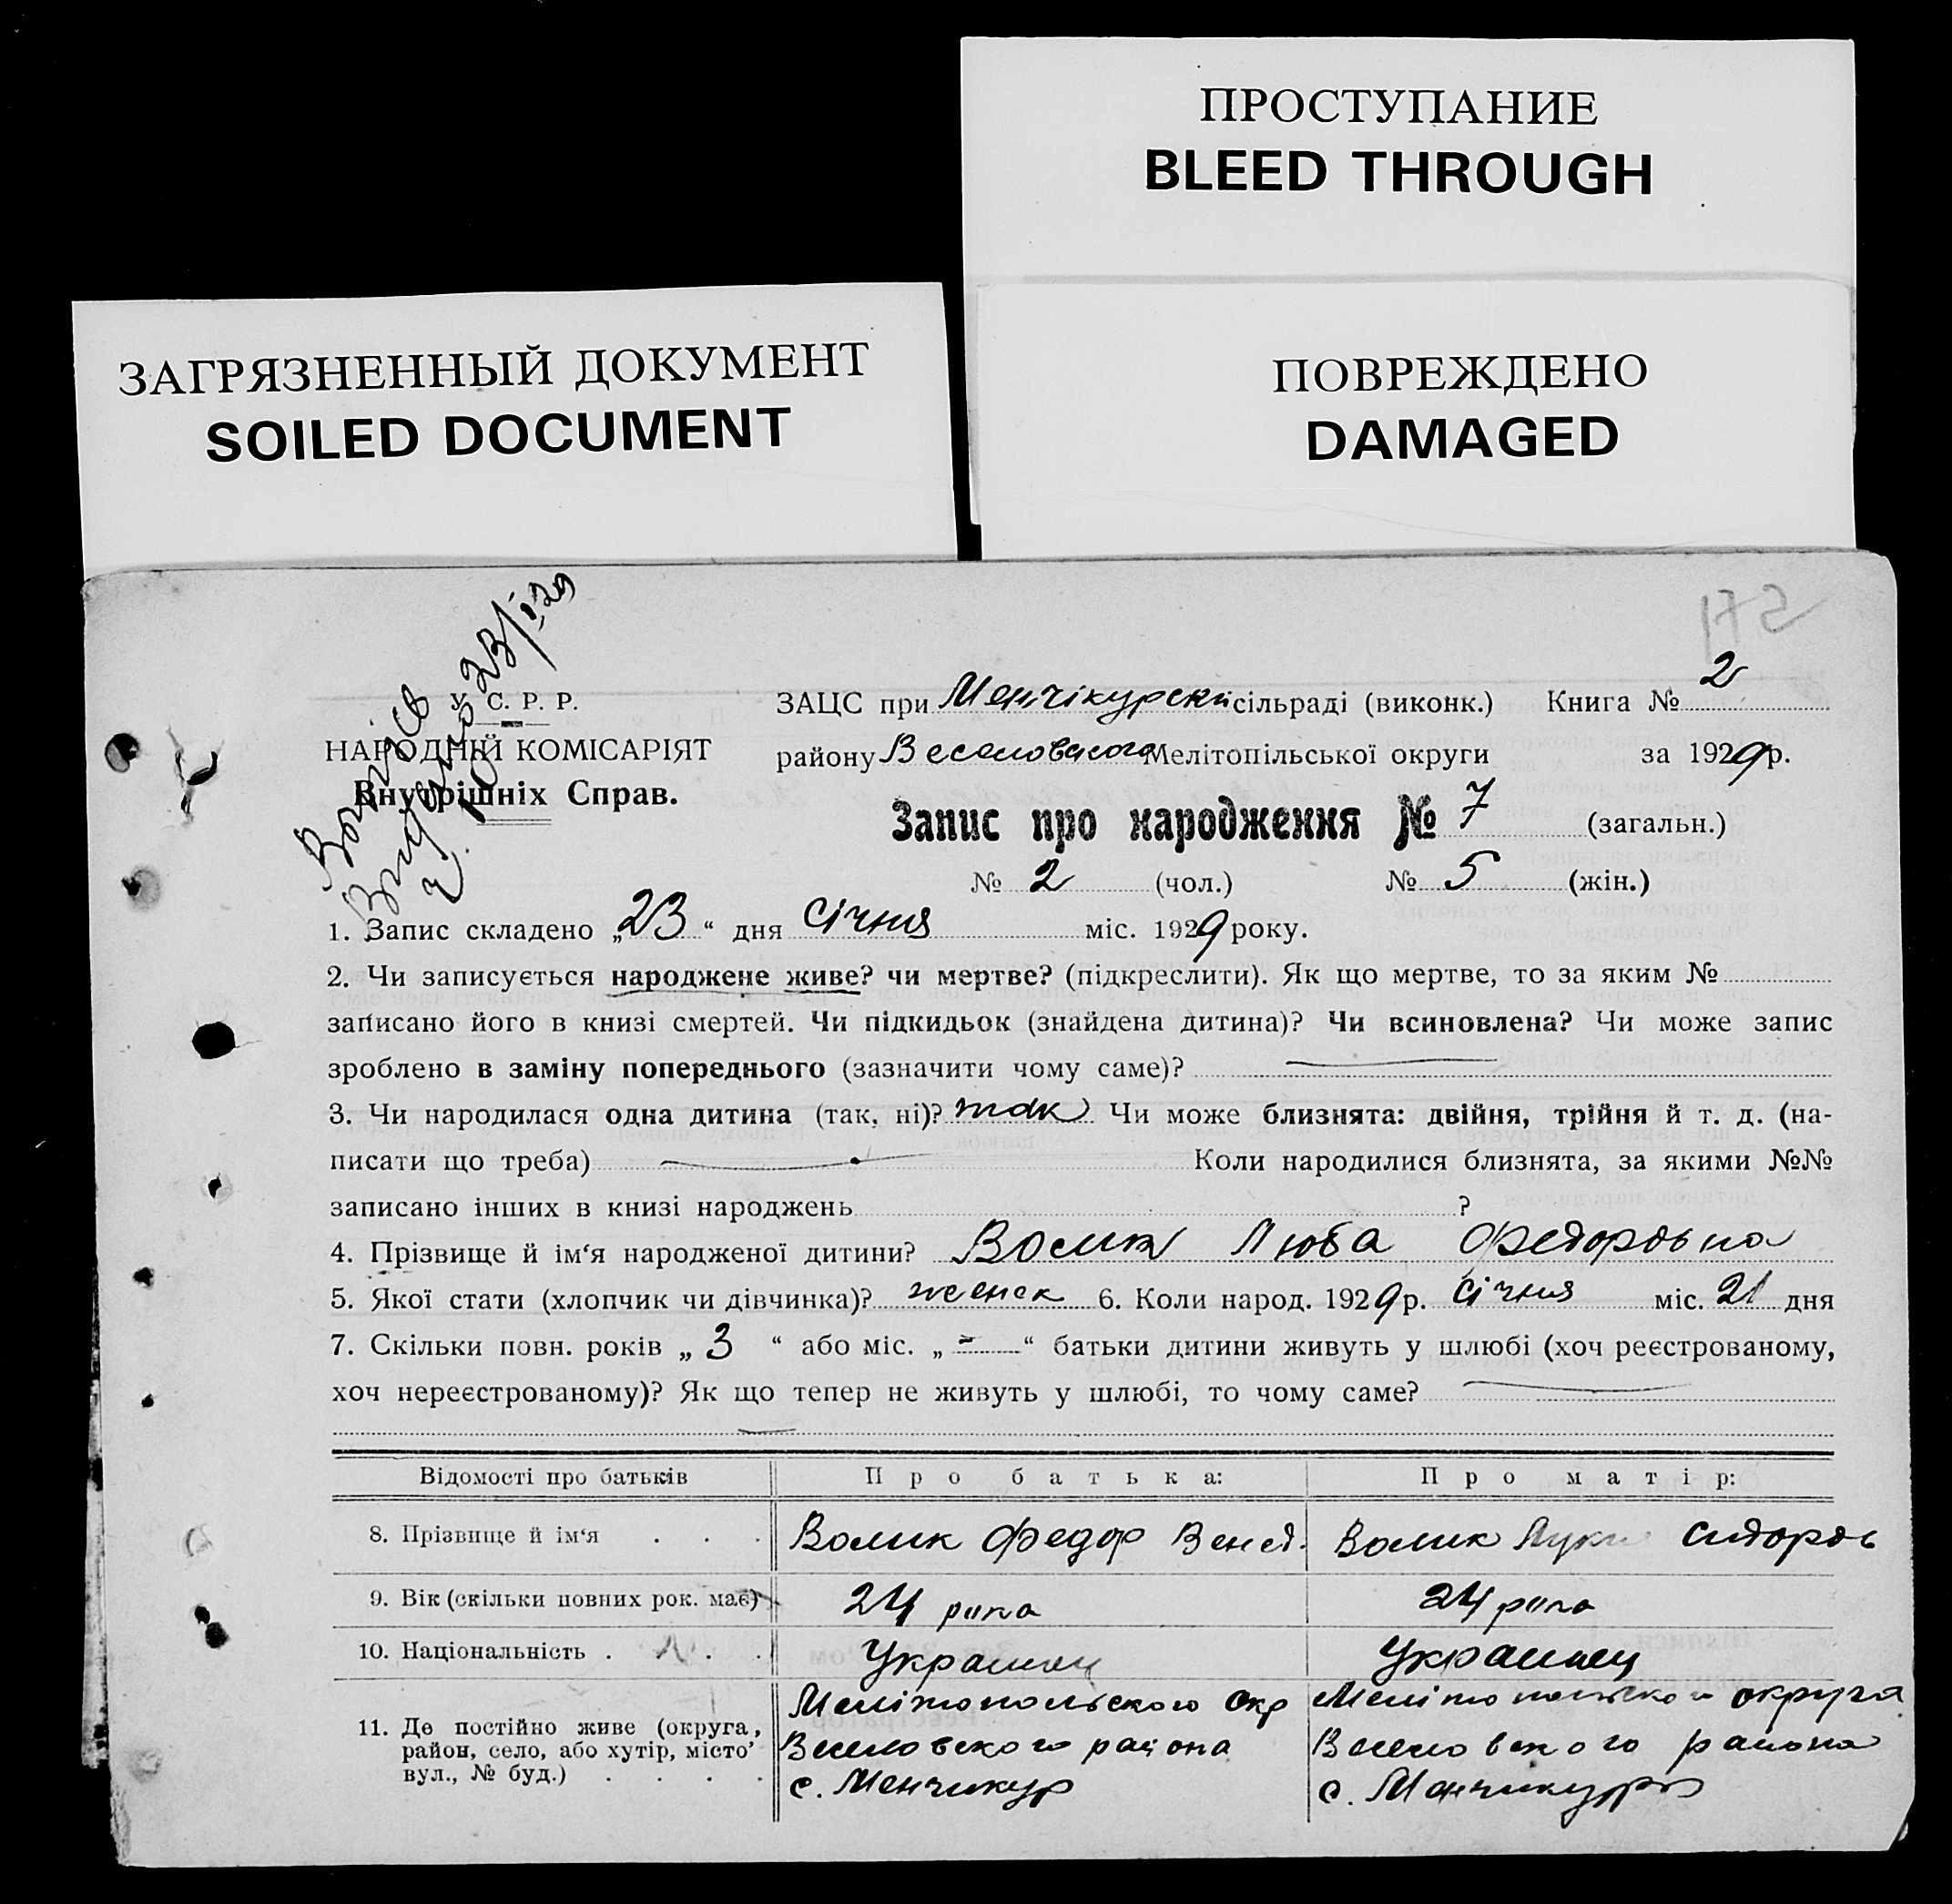 ПРОСТУПАНИЕ
BLEED THROUGH
ЗАГРЯЗНЕННЫЙ ДОКУМЕНТ
SOILED DOCUMENT
ПОВРЕЖДЕНО
DAMAGED
172
23/I 29
У. С. Р. Р.
НАРОДНІЙ КОМІСАРІЯТ
Внутрішніх Справ.
ЗАЦС при Менчікурскй сільраді (виконк.) Книга № 2
району Веселовского Мелітопільської округи за 1929 р.
Запис про народження № 7 (загальн.)
№ 2 (чол.) № 5 (жін.)
1. Запис складено „23“ дня січня міс. 1929 року.
2. Чи записується народжене живе? чи мертве? (підкреслити). Як що мертве, то за яким №
записано його в книзі смертей. Чи підкидьок (знайдена дитина)? Чи всиновлена? Чи може запис
зроблено в заміну попереднього (зазначити чому саме)?
3. Чи народилася одна дитина (так, ні)? так Чи може близнята: двійня, трійня й т. д. (на-
писати що треба) Коли народилися близнята, за якими №№
записано інших в книзі народжень ?
4. Прізвище й ім‘я народженої дитини? Волик Люба Федоровна
5. Якої стати (хлопчик чи дівчинка)? женск 6. Коли народ. 1929 р. січня міс. 21 дня
7. Скільки повн. років „ 3 “ або міс. „ = “ батьки дитини живуть у шлюбі (хоч реєстрованому,
хоч нереєстрованому)? Як що тепер не живуть у шлюбі, то чому саме?
Відомості про батьків Про батька: Про матір:
8. Прізвище й ім‘я . . . Волик Федор Венед. Волик Сидоров
9. Вік (скільки повних рок. має) 24 рока 24 рока
10. Національність . . . Украинец Украинец
11. Де постійно живе (округа, район, село, або хутір, місто’ вул., № буд.) . . . .
Мелітопольского Окр
Веселовского района
с. Менчикур
Мелітопольского округа
Веселовского района
с. Менчикуры